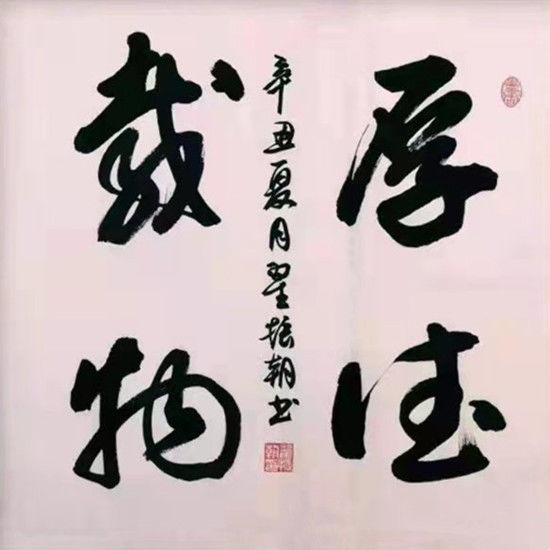 厚德
载物
辛丑夏月翟振朝书